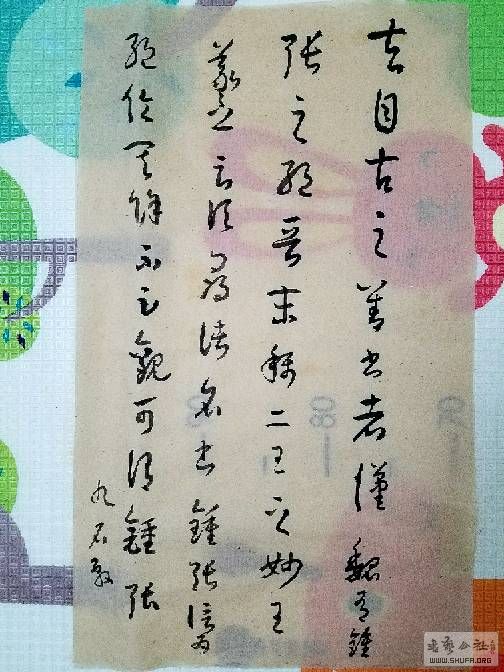 夫自古之善書者漢魏有鍾
張之絕晉末稱二王之妙王
羲之云頃尋諸名書鍾張信為
絕倫其餘不足觀可謂鍾張
九石
书艺公社
WWW.SHUFA.ORG